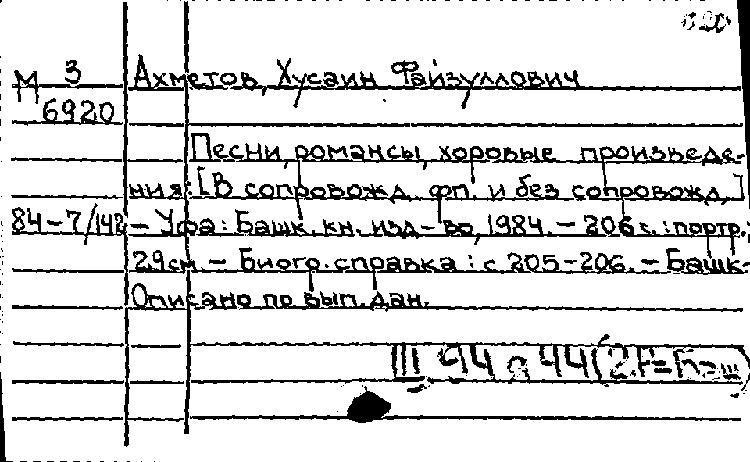 М 3 Ахметов, Хусаин Файзуллович
6920
Песни, романсы, хоровые произведе-
ния: [В сопровожд. фп. и без сопровожд.]
84-7/142 - Уфа: Башк. кн. изд-во, 1984. - 206 с.: портр.;
29 см. - Биогр. справка: с. 205-206. - Башк.
Описано по вып. дан.
Ш 94